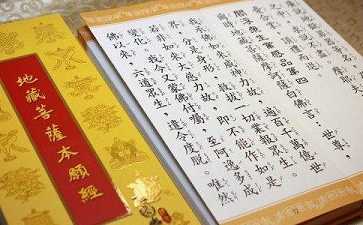 閻浮眾生業感品第四
爾時地藏菩薩摩訶薩白佛言：世尊，
我承佛如來威神力故，遍百千萬億世
界，分是身形，救拔一切業報眾生。
若非如來大慈力故，即不能作如是
變化。我今又蒙佛付囑，至阿逸多成
佛以來，六道眾生，遣令度脫。唯然
地藏菩薩本願經